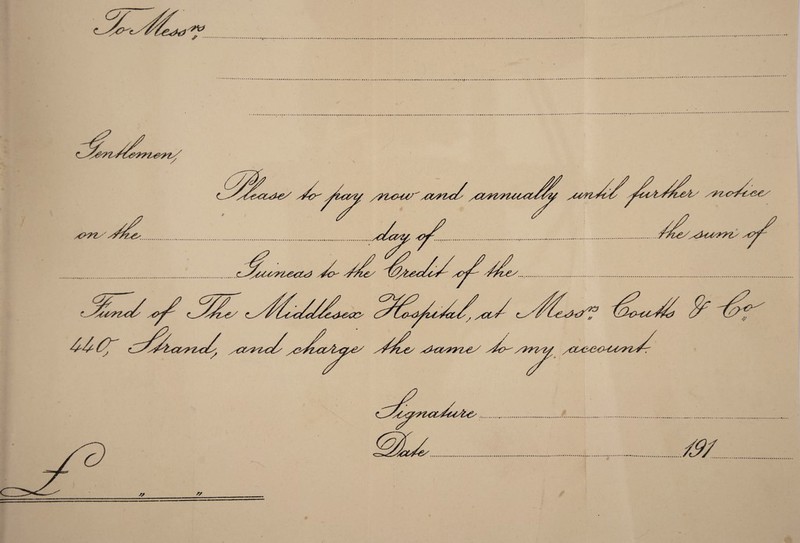 To Messrs
Gentlemen,
Please to pay now and annually until further notice
on the day of the sum of
Guineas to the Credit of the
Fund of The Middlesex Hospital, at Messrs Coutts & Co
440, Strand, and charge the same to my account.
Signature
Date 191
£ " "